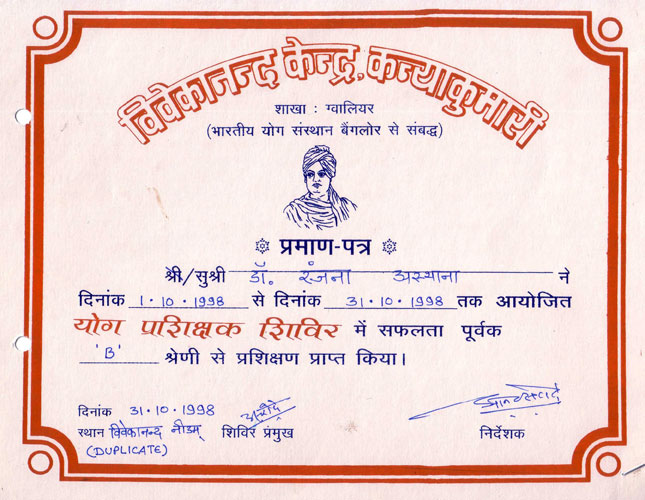 विवेकानन्द केन्द्र, कन्याकुमारी
शाखा : ग्वालियर
(भारतीय योग संस्थान बैंगलोर से संबद्ध)
प्रमाण-पत्र
श्री/सुश्री डॉ. रंजना अस्थाना ने
दिनांक 1.10.1998 से दिनांक 31.10.1998 तक आयोजित
योग प्रशिक्षक शिविर में सफलता पूर्वक
'B' श्रेणी से प्रशिक्षण प्राप्त किया।
दिनांक 31.10.1998
स्थान विवेकानन्द नीडम् शिविर प्रमुख निर्देशक
(DUPLICATE)